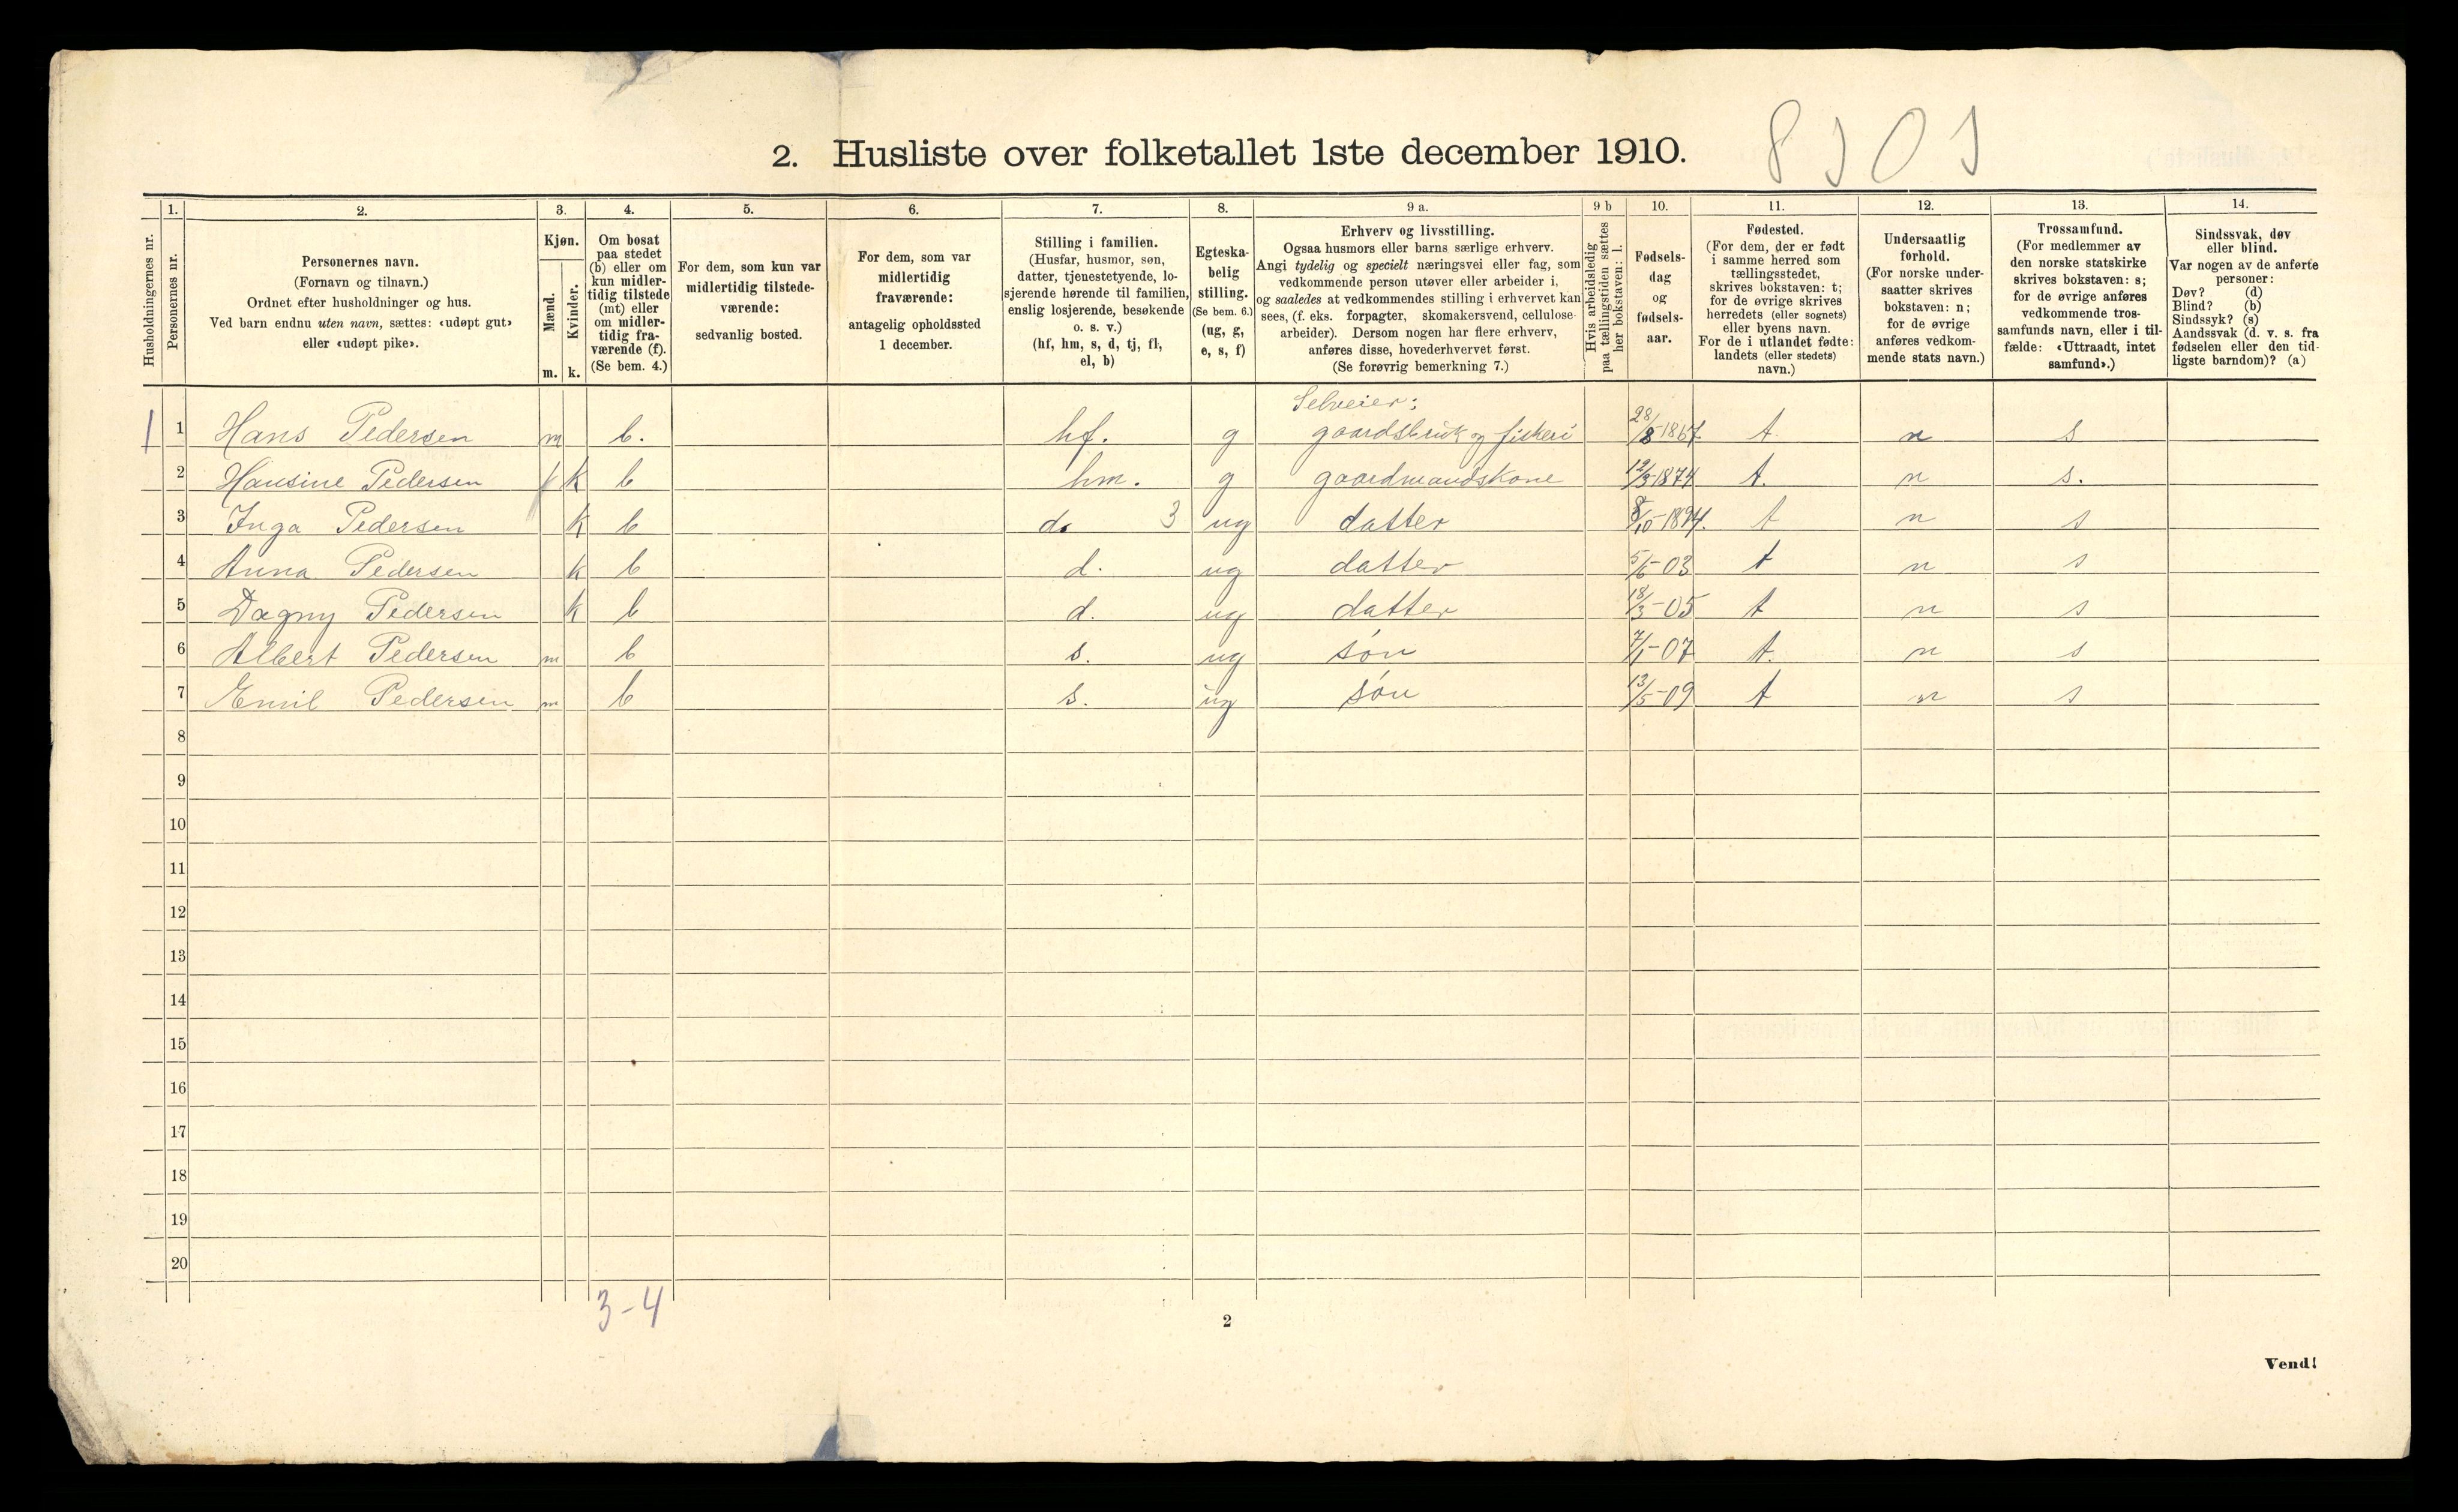 2. Husliste over folketallet 1ste december 1910.
1. 2. 3. 4. 5. 6. 7. 8. 9 a. 9 b 10. 11. 12. 13. 14.
Husholdningernes nr.
Personernes nr.
Personernes navn.
(Fornavn og tilnavn.)
Ordnet efter husholdninger og hus.
Ved barn endnu uten navn, sættes: «udøpt gut»
eller «udøpt pike».
Kjøn.
Mænd.
Kvinder.
m. k.
Om bosat
paa stedet
(b) eller om
kun midler-
tidig tilstede
(mt) eller
om midler-
tidig fra-
værende (f).
(Se bem. 4.)
For dem, som kun var
midlertidig tilstede-
værende:
sedvanlig bosted.
For dem, som var
midlertidig
fraværende:
antagelig opholdssted
1 december.
Stilling i familien.
(Husfar, husmor, søn,
datter, tjenestetyende, lo-
sjerende hørende til familien,
enslig losjerende, besøkende
o. s. v.)
(hf, hm, s, d, tj, fl,
el, b)
Egteska-
belig
stilling.
(Se bem. 6.)
(ug, g,
e, s, f)
Erhverv og livsstilling.
Ogsaa husmors eller barns særlige erhverv.
Angi tydelig og specielt næringsvei eller fag, som
vedkommende person utøver eller arbeider i,
og saaledes at vedkommendes stilling i erhvervet kan
sees, (f. eks. forpagter, skomakersvend, cellulose-
arbeider). Dersom nogen har flere erhverv,
anføres disse, hovederhvervet først.
(Se forøvrig bemerkning 7.)
Hvis arbeidsledig
paa tællingstiden sættes
her bokstaven: l.
Fødsels-
dag
og
fødsels-
aar.
Fødested.
(For dem, der er født
i samme herred som
tællingsstedet,
skrives bokstaven: t;
for de øvrige skrives
herredets (eller sognets)
eller byens navn.
For de i utlandet fødte:
landets (eller stedets)
navn.)
Undersaatlig
forhold.
(For norske under-
saatter skrives
bokstaven: n;
for de øvrige
anføres vedkom-
mende stats navn.)
Trossamfund.
(For medlemmer av
den norske statskirke
skrives bokstaven: s;
for de øvrige anføres
vedkommende tros-
samfunds navn, eller i til-
fælde: «Uttraadt, intet
samfund».)
Sindssvak, døv
eller blind.
Var nogen av de anførte
personer:
Døv? (d)
Blind? (b)
Sindssyk? (s)
Aandssvak (d. v. s. fra
fødselen eller den tid-
ligste barndom)? (a)
Selveier:
1 1 Hans Pedersen m b. hf. g gaardsbruk og fiskeri 28/8-1867. t n s
2 Hansine Pedersen k b hm. g gaardmandskone 12/3-1874 t. n s.
3 Inga Pedersen k b d. 3 ug datter 8/10-1894. t n s
4 Anna Pedersen k b d. ug datter 5/6-03 t n s
5 Dagny Pedersen k b d. ug datter 18/3-05 t n s
6 Albert Pedersen m b s. ug søn 7/1-07 t. n s
7 Emil Pedersen m b s. ug søn 13/5-09 t n s
8
9
10
11
12
13
14
15
16
17
18
19
20
3-4
2
Vend!